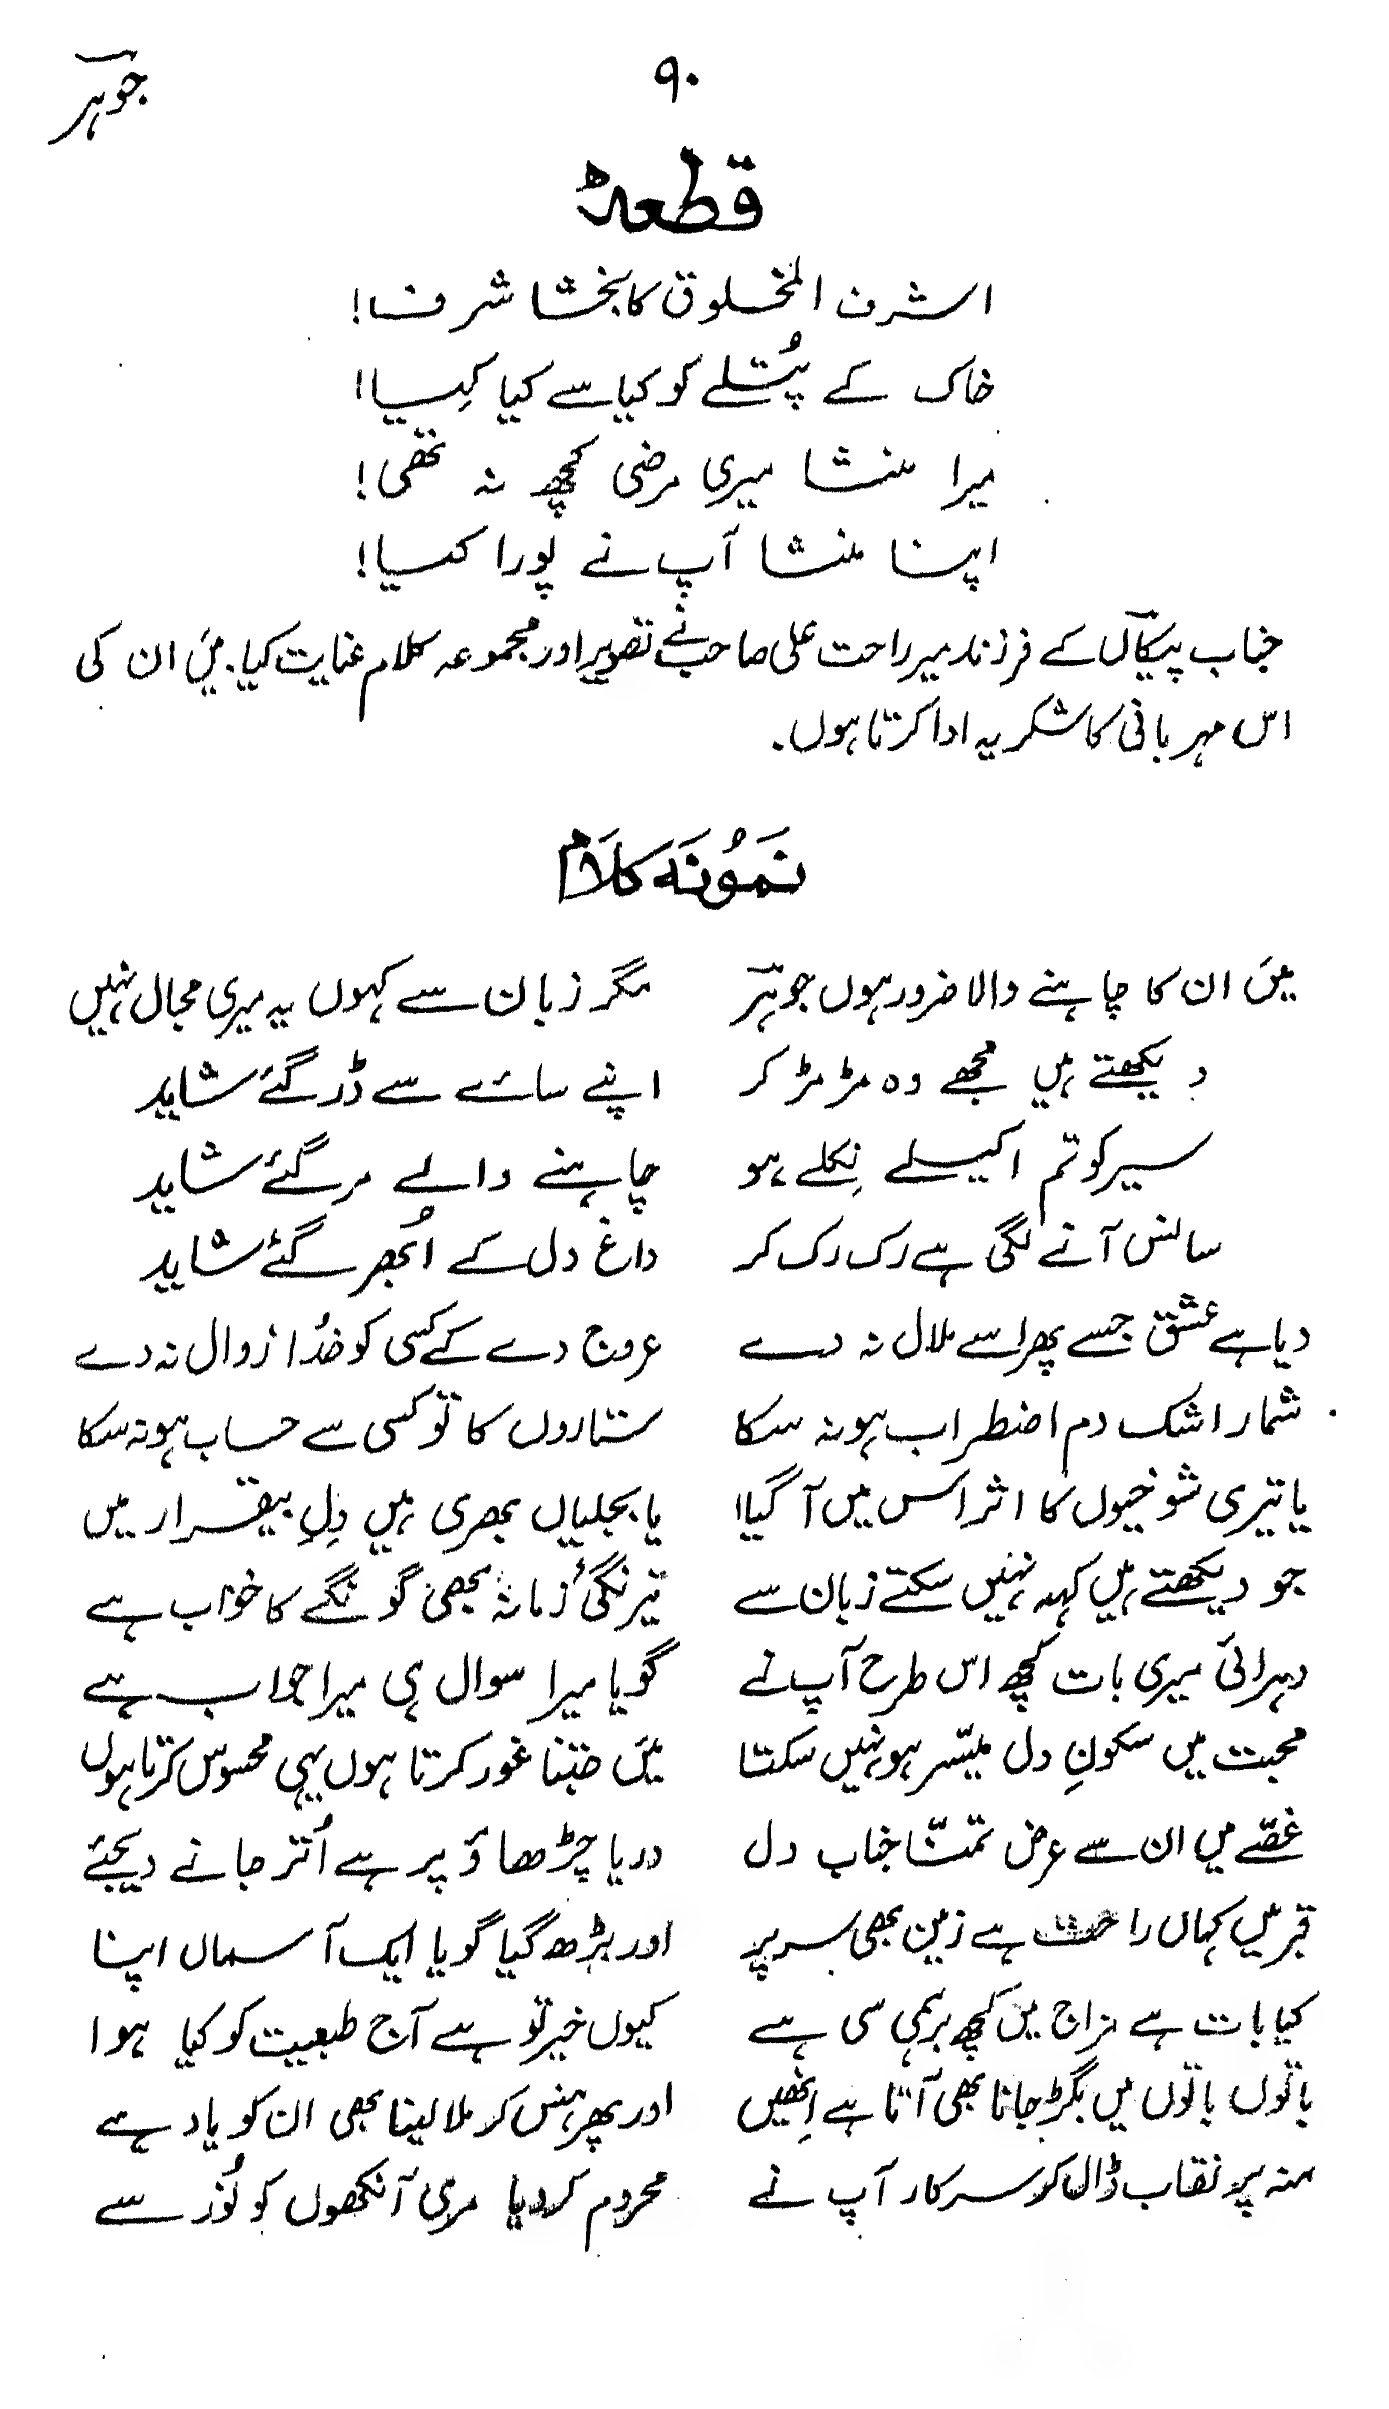 جوہر
۹۰
قطعہ
اشرف المخلوق کا بخشا شرف!
خاک کے پُتلے کو کیا سے کیا کِیا!
میرا منشا میری مرضی کچھ نہ تھی!
اپنا منشا آپ نے پورا کیا!
جناب پیکاؔں کے فرزند میر راحت علی صاحب نے تصویر اور مجموعہ کلام عنایت کیا. میں ان کی
اس مہربانی کا شکریہ ادا کرتا ہوں.
نَمُونَہ کَلَام
میں ان کا چاہنے والا ضرور ہوں جوہرؔ مگر زبان سے کہوں یہ میری مجال نہیں
دیکھتے ہیں مجھے وہ مڑ مڑ کر اپنے سائے سے ڈر گئے شاید
سیر کو تم اکیلے نِکلے ہو چاہنے والے مر گئے شاید
سانس آنے لگی ہے رک رک کر داغ دل کے اُبھر گئے شاید
دیا ہے عشق جسے پھر اسے ملال نہ دے عروج دے کے کسی کو خُدا زوال نہ دے
شمار اشک دم اضطراب ہو نہ سکا ستاروں کا تو کسی سے حساب ہو نہ سکا
یا تیری شوخیوں کا اثر اس میں آ گیا یا بجلیاں بھری ہیں دِلِ بیقرار میں
جو دیکھتے ہیں کہہ نہیں سکتے زبان سے نیرنگیٔ زمانہ بھی گونگے کا خواب ہے
دہرائی میری بات کچھ اس طرح آپ نے گویا میرا سوال ہی میرا جواب ہے
محبت میں سکونِ دل میسّر ہو نہیں سکتا میں جتنا غور کرتا ہوں یہی محسوس کرتا ہوں
غصّے میں ان سے عرض تمنّا جناب دل دریا چڑھاؤ پر ہے اُتر جانے دیجئے
قبر میں کہاں راحت ہے زمین بھی سر پر اور بڑھ گیا گویا ایک آسماں اپنا
کیا بات ہے مزاج میں کچھ برہمی سی ہے کیوں خیر تو ہے آج طبعیت کو کیا ہوا
باتوں باتوں میں بگڑ جانا بھی آتا ہے اِنھیں اور پھر ہنس کر ملا لینا بھی ان کو یاد ہے
منہ پر نقاب ڈال کر سرکار آپ نے محروم کر دیا مری آنکھوں کو نُور سے